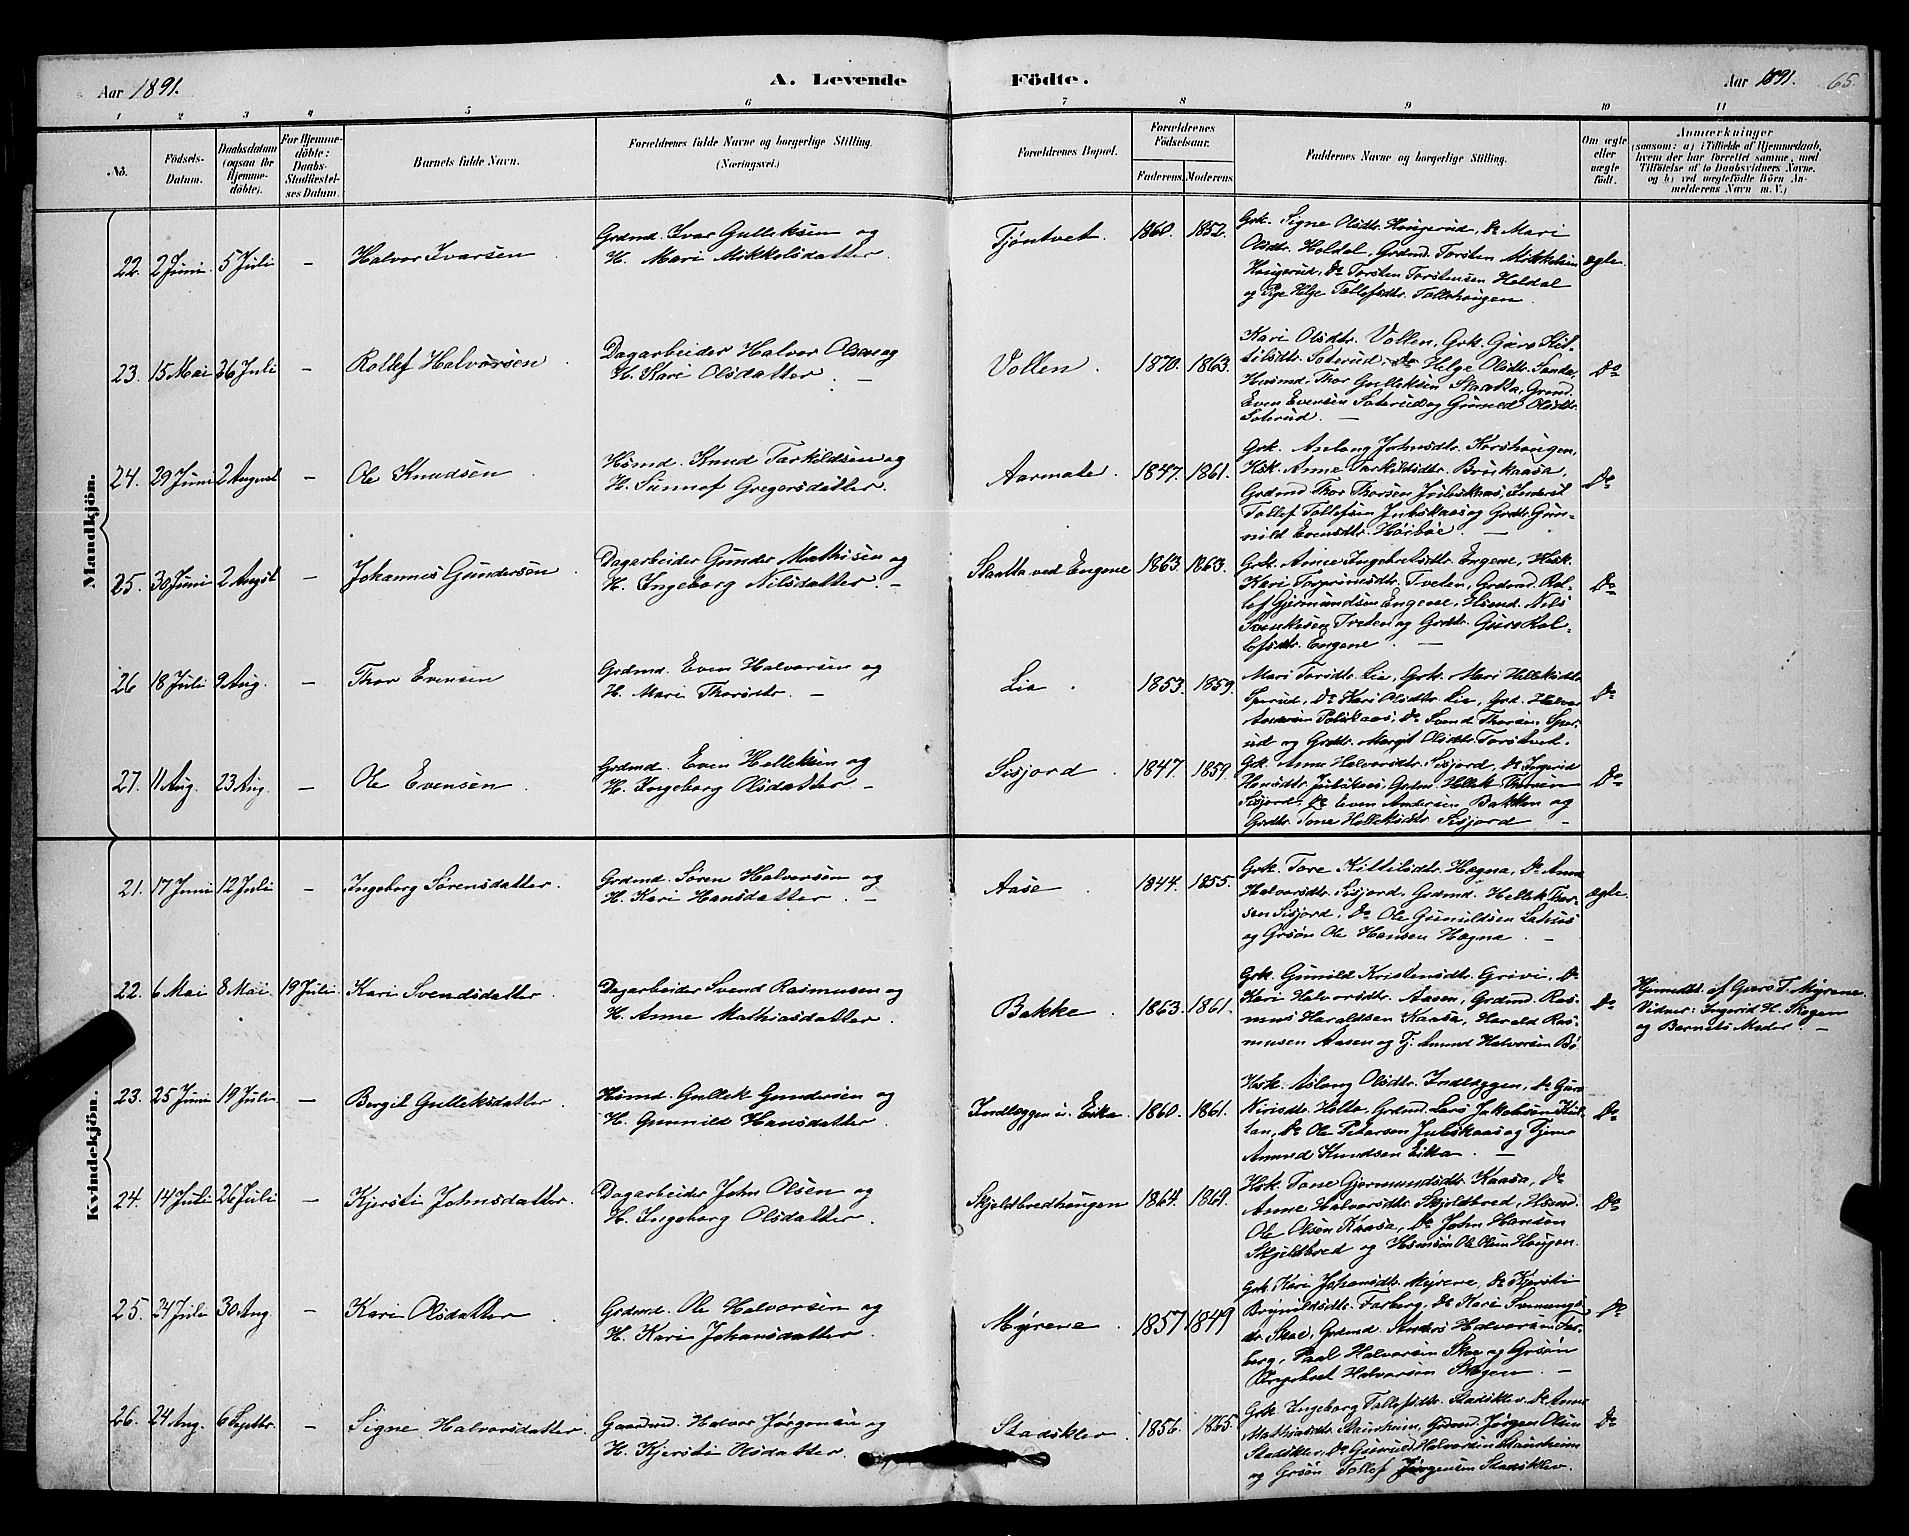 Aar 1891.
A. Levende
Födte.
Aar 1891. 65.
1 2 3 4 5 6 7 8 9 10 11
No.
Födsels-
Datum.
Daabsdatum
(ogsaa for
Hjemme-
döbte).
For Hjemme-
döbte:
Daabs-
Stadfæstel-
ses Datum.
Barnets fulde Navn.
Forældrenes fulde Navne og borgerlige Stilling.
(Næringsvei.)
Forældrenes Bopæl.
Forældrenes
Födselsaar.
Faderens. Moderens.
Faddernes Navne og borgerlige Stilling.
Om ægte
eller
uægte
födt.
Anmærkninger
(saasom: a) i Tilfælde af Hjemmedaab,
hvem der har forrettet samme, med
Tilföielse af to Daabsvidners Navne.
og b) ved uægtefödte Börn An-
melderens Navn m. V.)
Mandkjön.
22. 2 Juni. 5 Juli – Halvor Ivarsen
Grdmd. Ivar Gulleksen og
H. Mari Mikkelsdatter.
Tjöntvet. 1860. 1852.
Grk. Signe Olsdtr. Hougerud, Do Mari
Olsdtr. Holdal, Grdmd. Torsten Mikkelsen
Hougerud, Do Torsten Torstensen Holdal
og Pige Helge Tollefsdtr. Tollehaugen.
ægte.
23. 15 Mai 26 Juli – Rollef Halvorsen
Dagarbeider Halvor Olsen og
H. Kari Olsdatter. –
Vollen. 1870. 1863.
Kari Olsdtr. Vollen, Grk. Guro Kit-
tilsdtr. Soterud, Do Helge Olsdtr. Sanda,
Husmd. Thor Gulleksen Slaatta, Grmd.
Even Evensen Soterud og Gunild Olsdtr.
Soterud. –
Do
24. 29 Juni 2 August – Ole Knudsen
Hsmd. Knud Tarkildsen og
H. Sunnof Gregersdatter.
Aarmote. 1847. 1861.
Grk. Aslaug Johnsdtr. Korshaugen,
Hsk. Anne Tarkildsdtr. Brukaasa,
Grdmd Thor Thorsen Jubskaas, Inderst
Tollef Tollefsen Jubskaas og Grdtr. Gun-
nild Evensdtr. Höiböe. –
Do
25. 30 Juni 2 Augst – Johannes Gundersen
Dagarbeider Gunder Mathisen og
H. Ingeborg Nilsdatter. –
Slaatta ved Engene 1863. 1863.
Grk. Anne Ingebretsdtr. Engene, Hsk.
Kari Torgrimsdtr. Tveten, Grdmd. Rol-
lef Gjermundsen Engene, Hsmd. Nils
Tveten og Grdtr. Guro Rol-
lefsdtr. Engene. –
Do
26 18 Juli 9 Aug. – Thor Evensen
Grdmd. Even Halvorsen og
H. Mari Thorsdtr. –
Lia. 1853. 1859.
Mari Torsdtr. Lia, Grk. Mari Helleksdtr.
Sporud, Do Kari Olsdtr. Lia, Grd. Halvor
Andersen Polskaas, Do Svend Thorsen Spor-
ud og Grdtr. Margit Olsdtr. Torstvet.
Do
27. 11 Aug. 23 Aug. – Ole Evensen
Grdmd. Even Helleksen og
H. Ingeborg Olsdatter –
Sisjord. 1847. 1859.
Grk. Anne Halvorsdtr. Sisjord, Do Ingerid
Hansdtr. Jubskaas, Grdm. Hellek Thorsen
Sisjord, Do Even Andersen Bakken og
Grdtr. Tone Helleksdtr. Sisjord –
Do
Kvindekjön.
21. 17 Juni 12 Juli – Ingeborg Sörensdatter.
Grdmd. Sören Halvorsen og
H. Kari Hansdatter. –
Aase. 1844. 1855.
Grk. Tore Kittilsdtr. Hogna, Do Anne
Halvorsdtr. Sisjord, Grdmd. Hellek Thor-
sen Sisjord, Do Ole Gunuldsen
og Grsön Ole Hansen Hogna. –
ægte.
22. 6 Mai 8 Mai. 19 Juli Kari Svendsdatter.
Dagarbeider Svend Rasmusen og
H. Anne Mathiasdatter.
Bakke. 1863. 1861.
Grk. Gunild Kristensdtr. Grivi, Do
Kari Halvorsdtr. Aasen, Grdmd. Ras-
mus Haraldsen Kaasa, Harald Ras-
musen Aasen og Tj. Amund Halvorsen Bö
Do
Hjemdbt. af Guro T. Myrene.
Vidner: Ingerid H. Skogen
og Barnets Moder. –
23. 25 Juni 19 Juli – Bergit Gulleksdatter.
Hsmd. Gullek Gundersen og
H. Gunnild Hansdatter.
Indlæggen u. Eika. 1860. 1861.
Hsk. Aslaug Olsdtr. Indlæggen, Do Guro
Nirisdtr. Holta, Grdmd. Lars Jakobsen
Do Ole Petersen Jubskaas og Tjener
Amund Knudsen Eika. –
Do
24. 14 Juli 26 Juli – Kjersti Johnsdatter.
Dagarbeider John Olsen og
H. Ingeborg Olsdatter.
Skjeldbredhaugen 1864. 1869.
Hsk. Tone Gjermundsdtr. Kaasa, Do
Anne Halvorsdtr. Skjeldbred, Hsmd.
Ole Olsen Kaasa, Do John Hansen
Skjeldbred og Hsmsön Ole Olsen Haugen.
Do
25. 24 Juli 30 Aug. – Kari Olsdatter.
Grdmd. Ole Halvorsen og
H. Kari Johansdatter.
Myrene. 1857 1849
Grk. Kari Johansdtr. Myrene, Do Kjersti
Brynildsdtr. Farberg, Do Kari Svenungs-
dr. Skoe, Grdmd. Anders Halvorsen Far-
berg, Paal Halvorsen Skoe og Grsön
Ingebret Halvorsen Skogen. –
Do
26. 24 Aug. 6 Septbr. – Signe Halvorsdatter.
Gaardmd. Halvor Jörgensen og
H. Kjersti Olsdatter.
Stadsklev. 1856. 1865.
Grk. Ingeborg Tollefsdtr. Stadsklev, Do Anne
Mathiasdtr. Staurheim, Grdmd. Jörgen Olsen
Stadsklev, Do Gunuld Halvorsen Staurheim
og Grsön Tollef Jörgensen Stadsklev.
Do